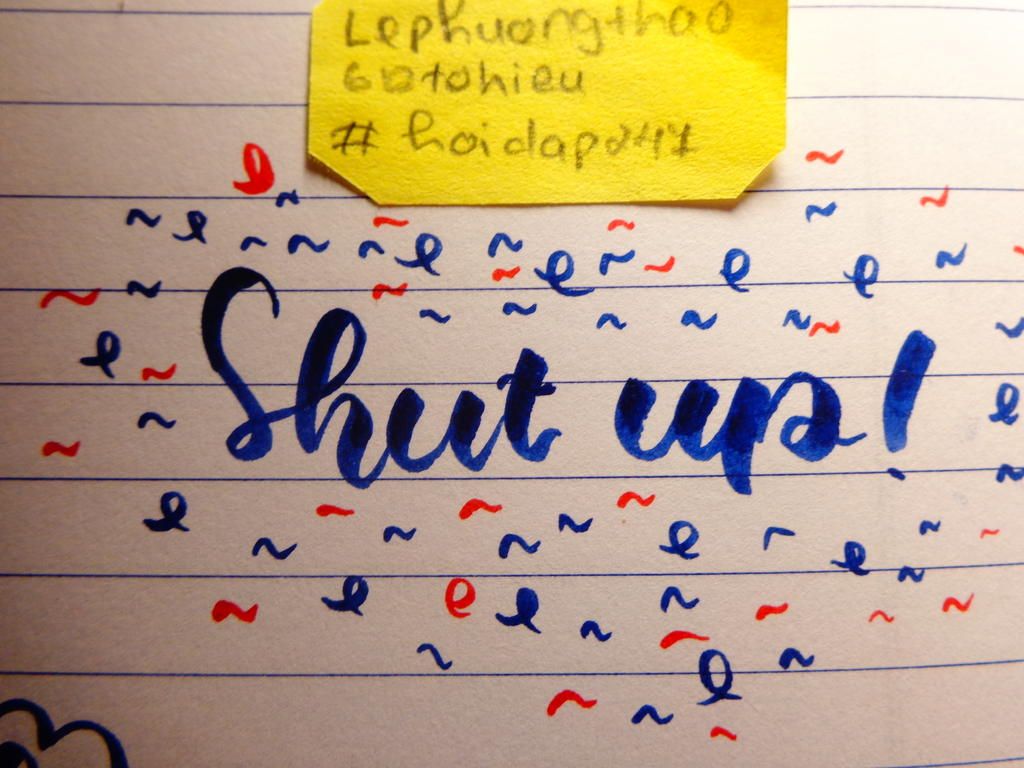 Lephuongthao
6D tohieu
# hoidap247
Shut up!